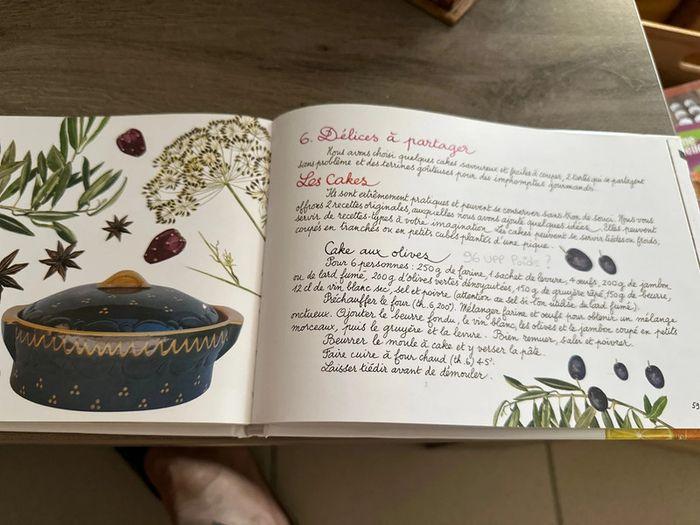 6. Délices à partager
Nous avons choisi quelques cakes savoureux et faciles à couper, 2 tartes qui se partagent
sans problème et des terrines goûteuses pour des impromptus gourmands.
Les Cakes
Ils sont extrêmement pratiques et peuvent se conserver sans trop de souci. Nous vous
offrons 2 recettes originales, auxquelles nous avons ajouté quelques idées. Elles peuvent
servir de recettes-types à votre imagination. Les cakes peuvent se servir tièdes ou froids,
coupés en tranches ou en petits cubes plantés d'une pique.
Cake aux olives
Pour 6 personnes : 250 g de farine, 1 sachet de levure, 4 œufs, 200 g de jambon
ou de lard fumé, 200 g d'olives vertes dénoyautées, 150 g de gruyère râpé, 150 g de beurre,
12 cl de vin blanc sec, sel et poivre (attention au sel si l'on utilise du lard fumé).
Préchauffer le four (th. 6, 200°). Mélanger farine et œufs pour obtenir un mélange
onctueux. Ajouter le beurre fondu, le vin blanc, les olives et le jambon coupé en petits
morceaux, puis le gruyère et la levure. Bien remuer, saler et poivrer.
Beurrer le moule à cake et y verser la pâte.
Faire cuire à four chaud (th. 6) 45'.
Laisser tiédir avant de démouler.
59